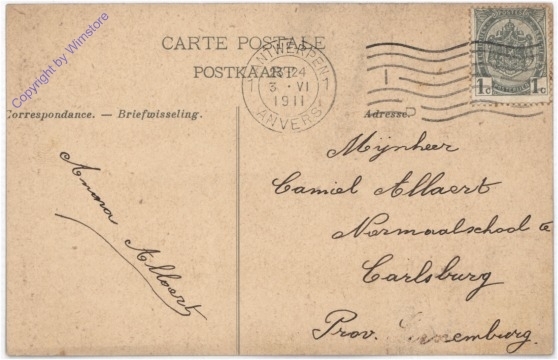 CARTE POSTALE
POSTKAART
1 ANTWERPEN 1
23-24
3 · VI
1911
ANVERS
1c 1c
Correspondance. — Briefwisseling.
Adresse.
Mijnheer
Camiel Allaert
Normaalschool te
Carlsburg
Prov. Luxemburg.
Anna Allaert
Copyright by Wimstore